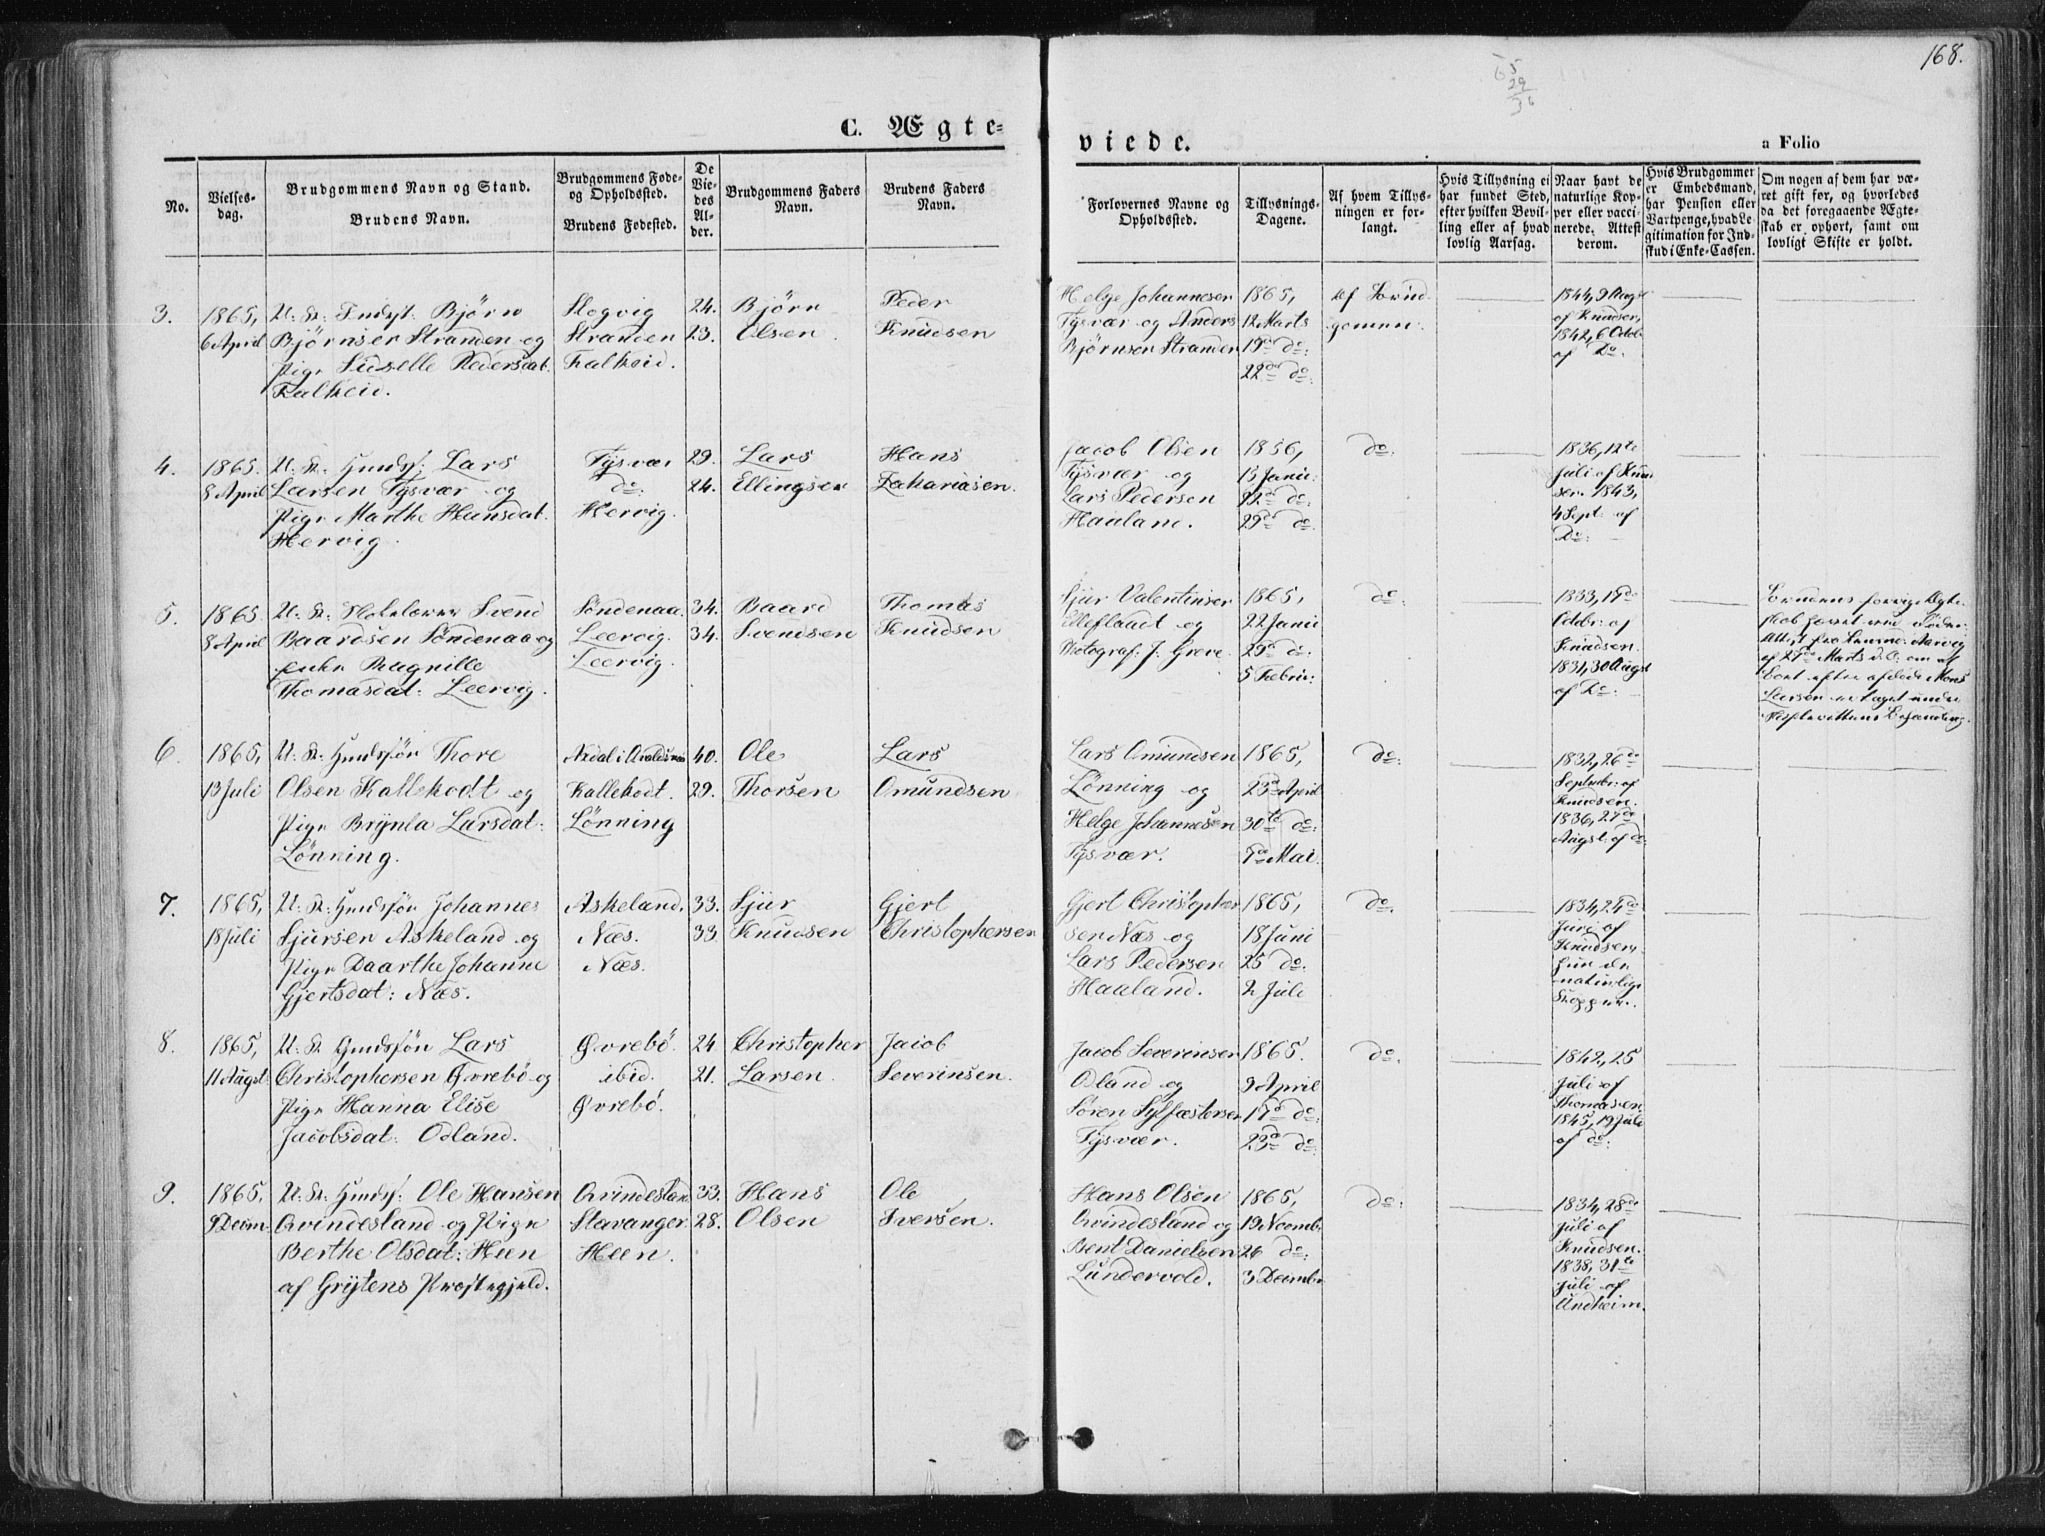 168.
5
29
36
C. Ægte=
viede.
a Folio
No.
Vielses-
dag.
Brudgommens Navn og Stand.
Brudens Navn.
Brudgommens Føde-
og Opholdssted.
Brudens Fødested.
De
Vie-
des
Al-
der.
Brudgommens Faders
Navn.
Brudens Faders
Navn.
Forlovernes Navne og
Opholdssted.
Tillysnings-
Dagene.
Af hvem Tillys-
ningen er for-
langt.
Hvis Tillysning ei
har fundet Sted,
efter hvilken Bevil-
ling eller af hvad
lovlig Aarsag.
Naar havt de
naturlige Kop-
per eller vacci-
nerede. Attest
derom.
Hvis Brudgommen
er Embedsmand,
har Pension eller
Vartpenge, hvad Le-
gitimation for Ind-
skud i Enke-Cassen.
Om nogen af dem har væ-
ret gift før, og hvorledes
da det foregaaende Ægte-
skab er ophørt, samt om
lovligt Skifte er holdt.
3.
1865,
6 April
U: K: Indst: Bjørn
Bjørnsen Stranden og
Pige Suselle Pedersdat.
Falkeid.
Slogvig
Stranden
Falkeid.
24.
23.
Bjørn
Olsen
Peder
Knudsen
Helge Johannesen
Tysvær og Anders
Bjørnsen Stranden
1865,
12 Marts
19de do:
22de do:
Af Brud
gommen.
1844, 9 Augst
af Knudsen,
1842, 6 Octob
af Do:
4.
1865.
8 April
U: K: Gmdsf: Lars
Larsen Tysvær og
Pige Marthe Hansdat.
Hervig.
Tysvær
do:
Hervig.
29.
24.
Lars
Ellingsen
Hans
Zahariasen.
Jacob Olsen
Tysvær og
Lars Pedersen
Haaland.
1856,
15 Janu:
22de do:
29de do.
do:
1836, 12te
Juli af Knud
sen. 1843,
4 Sept: af
Do:
5.
1865
8 April
U: K: Skolelærer Svend
Baardsen Søndenaa og
Enke Ragnille
Thomasdat: Leervig.
Søndenaa.
Leervig.
Leervig.
34.
34.
Baard
Svendsen
Thomas
Knudsen
Sjur Valentinsen
Elleflandt og
Photograf: J: Greve.
1865,
22 Janu
29de do:
5 Febru:
do:
1833, 19de
Octbr: af
Knudsen.
1831, 30 Augst
af Do:
Brudens forrige Ægte-
skab hævet ved Døden.
Attest fra
af 27de Marts d. A: om at
Boet efter afdøde Mons
Larsen er taget under
Skifterettens Behandling.
6.
1865,
13 Juli
U: K: Gmdsføn Thore
Olsen Kallekodt og
Pige Brynla Larsdat:
Lønning.
Axdal i Avaldsnæs
Kallekodt.
Lønning
40.
29.
Ole
Thorsen
Lars
Omundsen
Lars Omundsen
Lønning og
Helge Johannesen
Tysvær.
1865,
23de April
30te do:
7de Mai.
do:
1832, 26de
Septmbr: af
Knudsen.
1836, 27de
Augst: af do:
7.
1865,
18 Juli
U: K: Gmdsføn Johannes
Sjursen Askeland og
Pige Daarthe Johanne
Gjertsdat: Næs.
Askeland.
Næs.
Næs.
33.
33.
Sjur
Knudsen
Gjert
Christophersen
Gjert Christopher
sen Næs og
Lars Pedersen
Haaland.
1865,
18 Juni
25 do:
2 Juli
do.
1834, 24de
Juni af
Knudsen,
hun de
naturlige
Kopper.
8.
1865,
11 Augst:
U: K: Gmdsføn Lars
Christophersen Øvrebø og
Pige Hanna Elise
Jacobsdat: Odland.
Øvrebø.
ibid.
Øvrebø.
24.
21.
Christopher
Larsen.
Jacob
Severinsen.
Jacob Severinsen
Odland og
Søren Sylfæstersen
Tysvær.
1865.
9 April
17de do:
23de do:
do:
1842, 25
Juli af
Thomasen,
1845, 19 Juli
af do:
9.
1865,
9 Decem.
U: K: Gmdsf: Ole Hansen
Qvindesland og Pige
Berthe Olsdat: Heen
af Grytens Præstegjeld.
Qvindesland
Stavanger.
Heen.
33.
28.
Hans
Olsen
Ole
Iversen.
Hans Olsen
Qvindesland og
Bent Danielsen
Lundervold.
1865,
19 Novembr
26 do:
3 Decembr
do:
1834, 28de
Juli af
Knudsen.
1838, 31te
Juli af
Undheim.